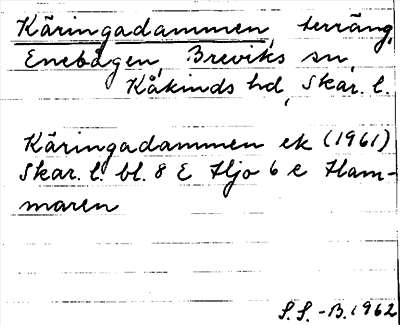 Käringadammen, terräng,
Enebågen, Breviks sn,
Kåkinds hd, Skar. l.
Käringadammen ek (1961)
Skar. l. bl. 8 E Hjo 6 e Ham-
maren
S.S. -B. 1962